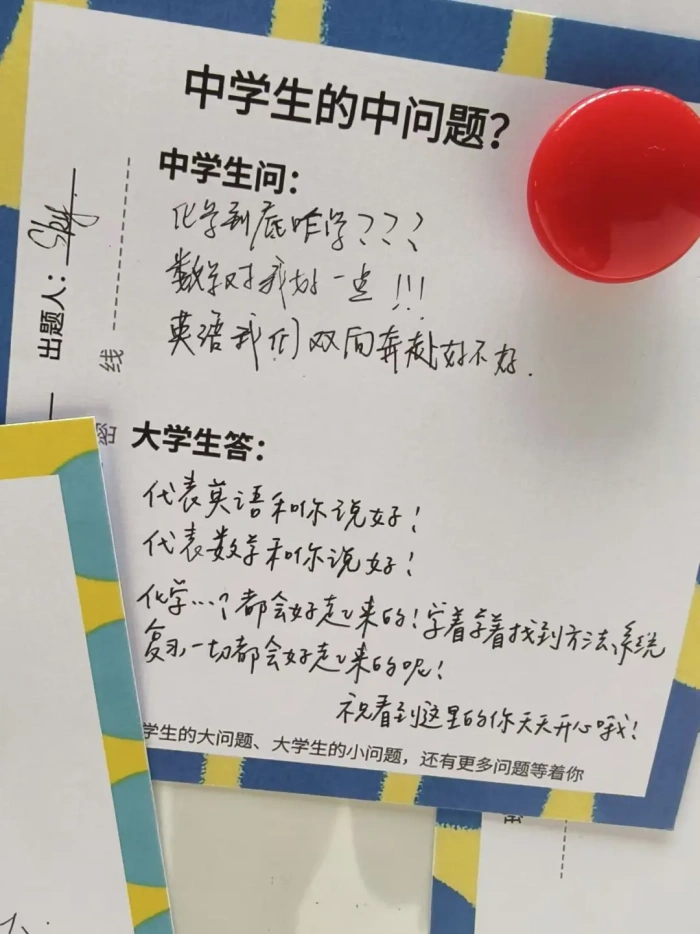 中学生的中问题？
中学生问：
化学到底咋学？？？
数学对我好一点!!!
英语我们双向奔赴好不好.
出题人：
线
大学生答：
代表英语和你说好！
代表数学和你说好！
化学…都会好起来的！学着学着找到方法、系统
复习一切都会好起来的呢！
祝看到这里的你天天开心哦！
学生的大问题、大学生的小问题，还有更多问题等着你